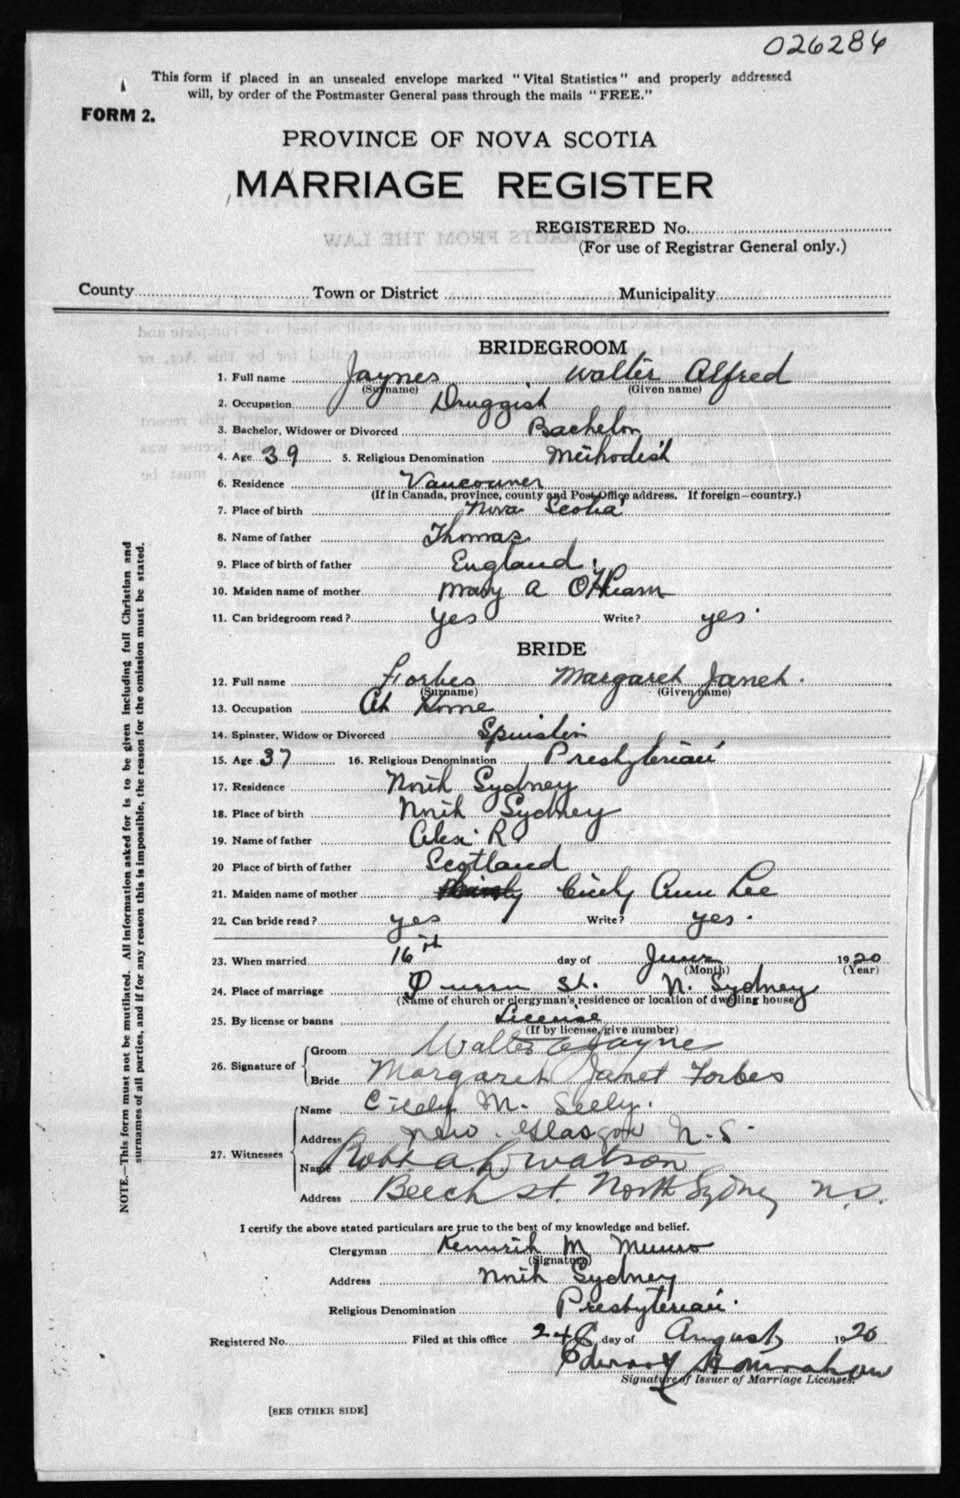 026286
This form if placed in an unsealed envelope marked "Vital Statistics" and properly addressed
will, by order of the Postmaster General pass through the mails "FREE."
FORM 2.
PROVINCE OF NOVA SCOTIA
MARRIAGE REGISTER
REGISTERED No.
(For use of Registrar General only.)
County Town or District Municipality
BRIDEGROOM
1. Full name Jaynes Walter Alfred
(Surname) (Given name)
2. Occupation Druggist
3. Bachelor, Widower or Divorced Bachelor
4. Age 39 5. Religious Denomination Methodist
6. Residence Vancouver
(If in Canada, province, county and Post Office address. If foreign—country.)
7. Place of birth Nova Scotia
8. Name of father Thomas
9. Place of birth of father England
10. Maiden name of mother Mary A O'Hearn
11. Can bridegroom read? yes Write? yes.
BRIDE
12. Full name Forbes Margaret Janet.
(Surname) (Given name)
13. Occupation At Home
14. Spinster, Widow or Divorced Spinster
15. Age 37 16. Religious Denomination Presbyterian
17. Residence North Sydney
18. Place of birth North Sydney
19. Name of father Alex. R.
20 Place of birth of father Scotland
21. Maiden name of mother Cicely Ann Lee
22. Can bride read? yes Write? yes.
23. When married 16th day of June 1920
(Month) (Year)
24. Place of marriage St. N. Sydney
(Name of church or clergyman's residence or location of dwelling house)
25. By license or banns License
(If by license, give number)
26. Signature of Groom Walter A Jayne
Bride Margaret Janet Forbes
27. Witnesses Name M. Seely.
Address New Glasgow N.S.
Name Watson
Address Beech St. North Sydney N.S.
I certify the above stated particulars are true to the best of my knowledge and belief.
Clergyman Kenneth M Munro
(Signature)
Address North Sydney
Religious Denomination Presbyterian.
Registered No. Filed at this office 24 day of August 1920
Signature of Issuer of Marriage Licenses.
[SEE OTHER SIDE]
NOTE.—This form must not be mutilated. All information asked for is to be given including full Christian and
surnames of all parties, and if for any reason this is impossible, the reason for the omission must be stated.
EXTRACTS FROM THE LAW